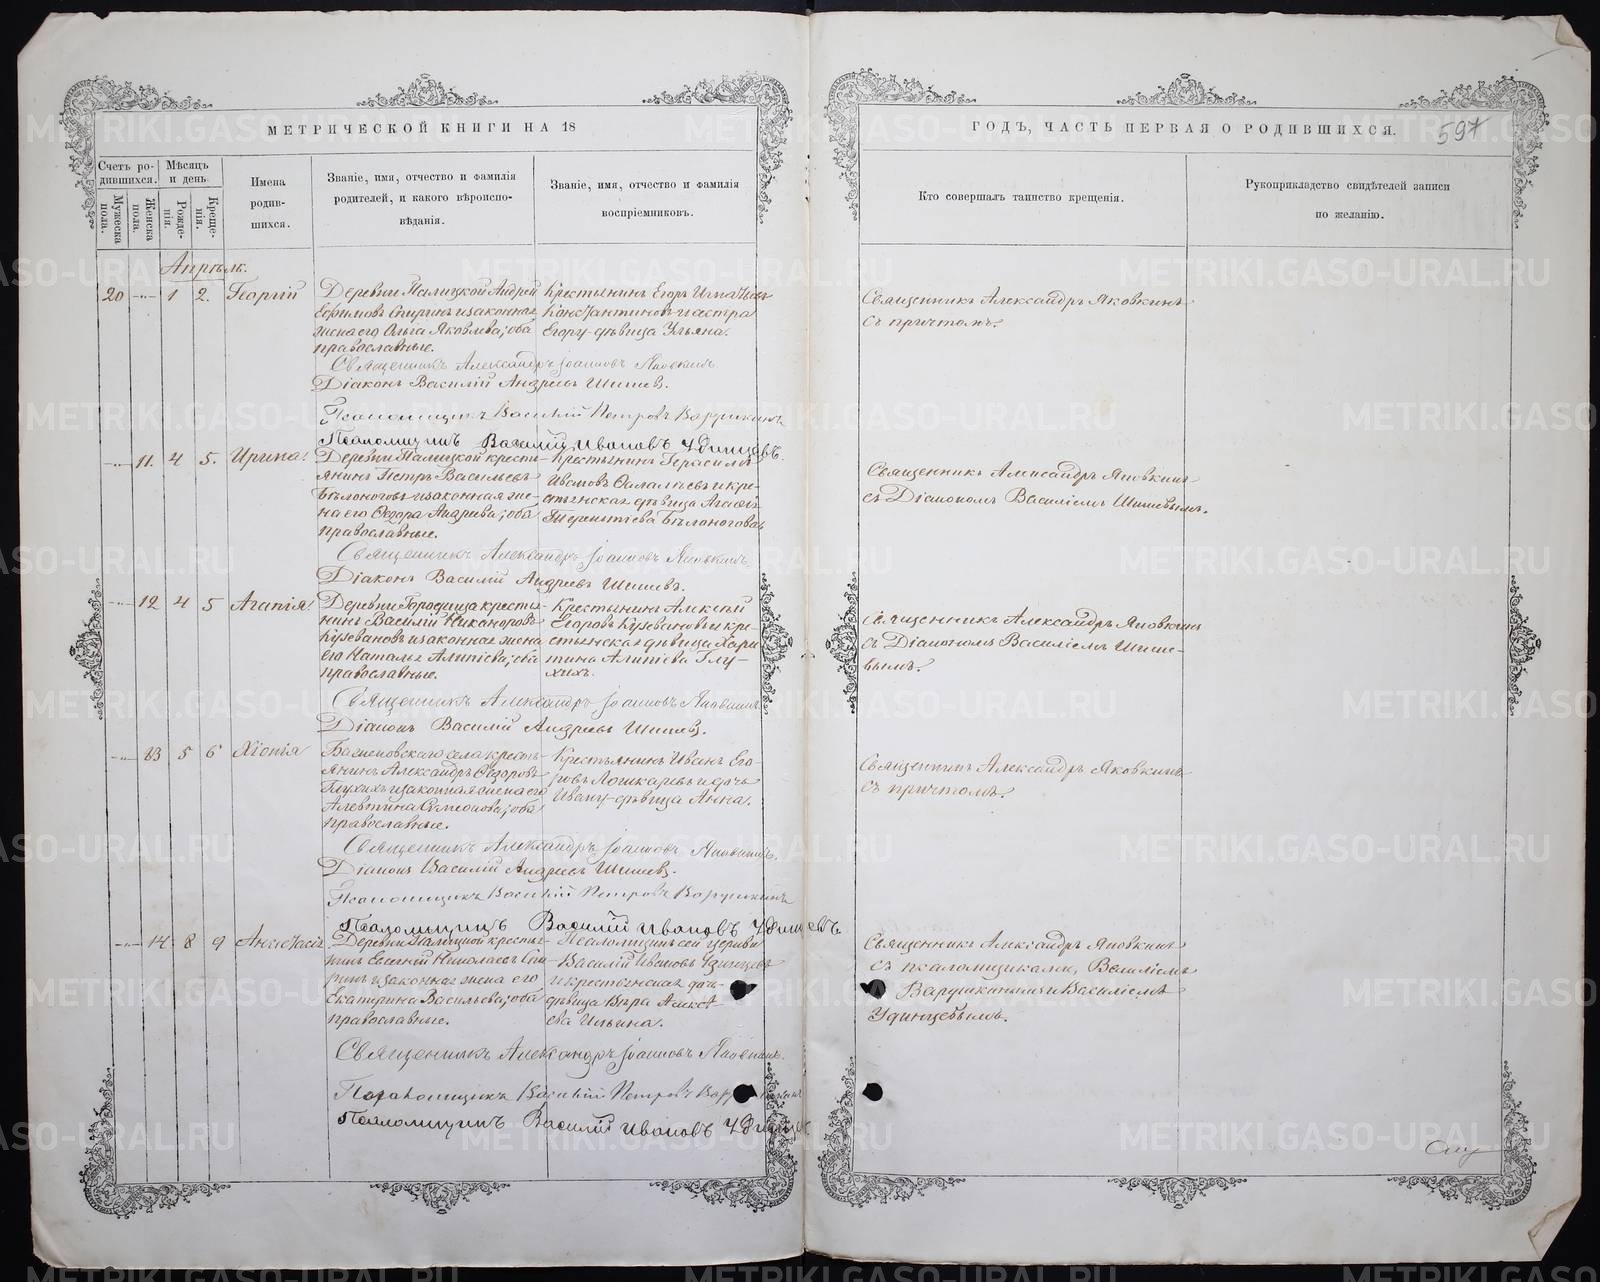 МЕТРИЧЕСКОЙ КНИГИ НА 18
Счетъ родившихся.
Мужеска пола.
Женска пола.
Мѣсяцъ и день.
Рожденія.
Крещенія.
Имена родившихся.
Званіе, имя, отчество и фамилія родителей, и какого вѣроисповѣданія.
Званіе, имя, отчество и фамилія воспріемниковъ.
Апрѣль.
20 1 2. Георгій
Деревни Палицкой Андрей
Ефимовъ Спиринъ и законная
жена его Ольга Яковлева; оба
православные.
Крестьянинъ Егоръ Игнатьевъ
Константиновъ и сестра
Егору дѣвица Ульяна.
Священникъ Александръ Іоанновъ Яковкинъ
Діаконъ Василій Андреевъ Шишевъ.
Псаломщикъ Василій Петровъ Варушкинъ
Псаломщикъ Василій Ивановъ Удинцевъ.
11. 4 5. Ирина.
Деревни Палицкой кресть-
янинъ Петръ Васильевъ
Бѣлоноговъ и законная же-
на его Ѳедора Андреева; оба
православные.
Крестьянинъ Герасимъ
Ивановъ и кре-
стьянская дѣвица Агафія
Терентіева Бѣлоногова
Священникъ Александръ Іоанновъ Яковкинъ.
Діаконъ Василій Андреевъ Шишевъ.
12 4 5 Агапія
Деревни Городища крестья-
нинъ Василій Никаноровъ
Кузевановъ и законная жена
его Наталья Алипіева; оба
православные.
Крестьянинъ Алексѣй
Егоровъ Кузевановъ и кре-
стьянская дѣвица Хари-
тина Алипіева Глу-
хихъ.
Священникъ Александръ Іоанновъ Яковкинъ
Діаконъ Василій Андреевъ Шишевъ.
13 5 6 Хіонія
села кресть-
янинъ Александръ Ѳедоровъ
Глухихъ и законная жена его
Алевтина Симеонова; оба
православные.
Крестьянинъ Иванъ Его-
ровъ Лошкаревъ и дочь
Ивану дѣвица Анна.
Священникъ Александръ Іоанновъ Яковкинъ.
Діаконъ Василій Андреевъ Шишевъ.
Псаломщикъ Василій Петровъ Варушкинъ
Псаломщикъ Василій Ивановъ Удинцевъ
14 8 9 Анастасія
Деревни Палицкой крестья-
нинъ Евгеній Николаевъ Спи-
ринъ и законная жена его
Екатерина Васильева; оба
православные.
Псаломщикъ сей церкви
Василій Ивановъ Удинцевъ
и крестьянская дочь
дѣвица Вѣра Алексѣ-
ева Ильина.
Священникъ Александръ Іоанновъ Яковкинъ.
Псаломщикъ Василій Петровъ
Псаломщикъ Василій Ивановъ
ГОДЪ, ЧАСТЬ ПЕРВАЯ О РОДИВШИХСЯ.
597
Кто совершалъ таинство крещенія.
Рукоприкладство свидѣтелей записи по желанію.
Священникъ Александръ Яковкинъ
съ причтомъ.
Священникъ Александръ Яковкинъ
съ Діакономъ Василіемъ Шишевымъ.
Священникъ Александръ Яковкинъ
съ Діакономъ Василіемъ Шише-
вымъ.
Священникъ Александръ Яковкинъ
съ причтомъ.
Священникъ Александръ Яковкинъ
съ псаломщиками, Василіемъ
Варушкинымъ и Василіемъ
Удинцевымъ.
METRIKI.GASO-URAL.RU